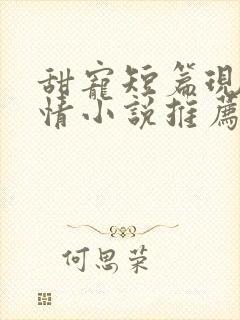 甜寵短篇現
情小說推薦
何思荣